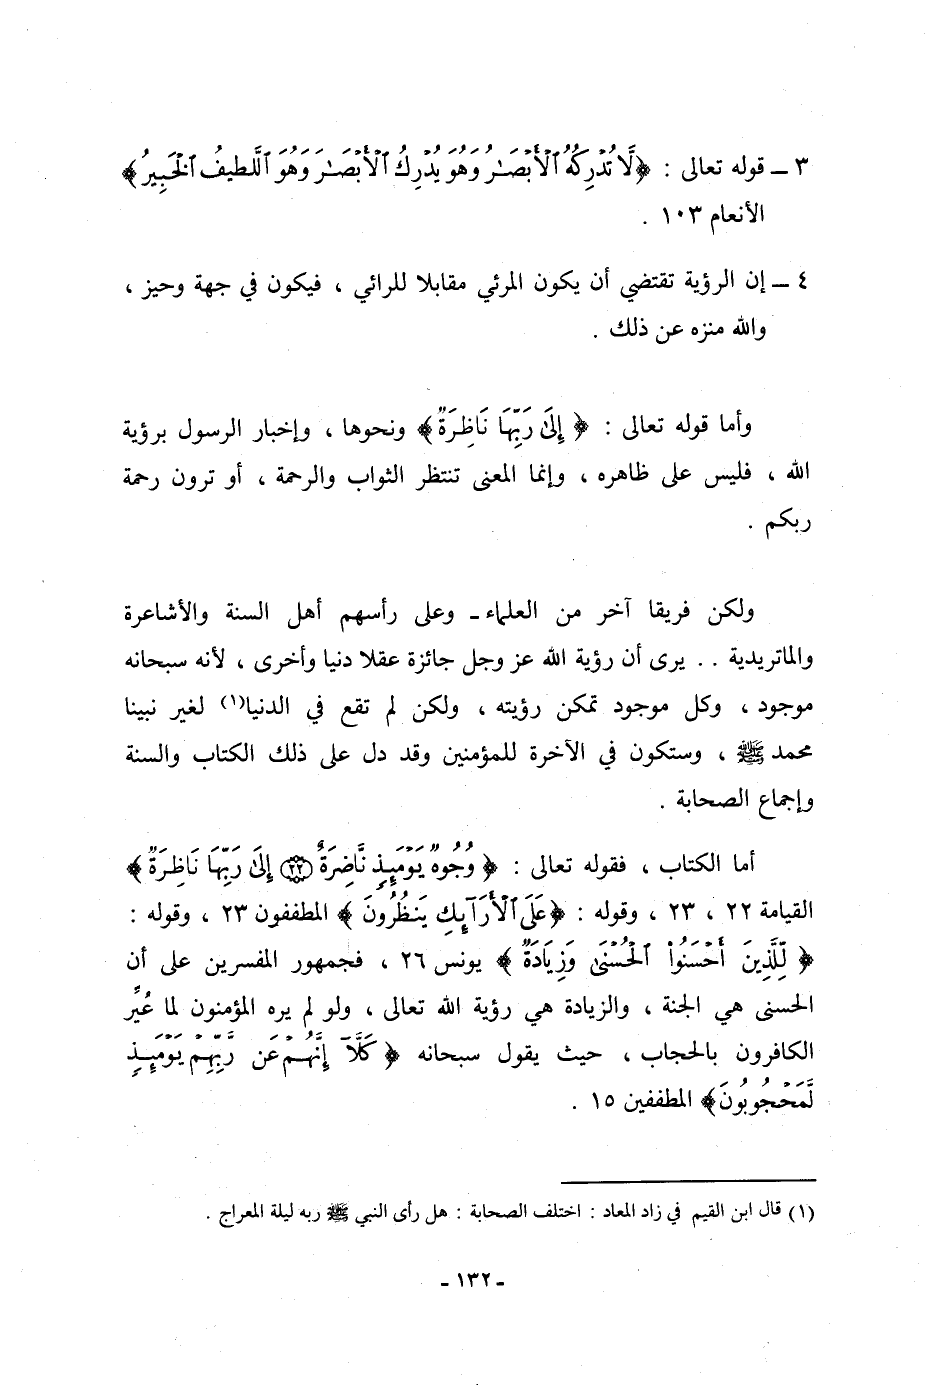 ٣ ـ قوله تعالى : ﴿لَّا تُدْرِكُهُ ٱلْأَبْصَـٰرُ وَهُوَ يُدْرِكُ ٱلْأَبْصَـٰرَ وَهُوَ ٱللَّطِيفُ ٱلْخَبِيرُ﴾
الأنعام ١٠٣ .
٤ ـ إن الرؤية تقتضي أن يكون المرئي مقابلا للرائي ، فيكون في جهة وحيز ،
والله منزه عن ذلك .
وأما قوله تعالى : ﴿ إِلَىٰ رَبِّهَا نَاظِرَةٌ ﴾ ونحوها ، وإخبار الرسول برؤية
الله ، فليس على ظاهره ، وإنما المعنى تنتظر الثواب والرحمة ، أو ترون رحمة
ربكم .
ولكن فريقا آخر من العلماء ـ وعلى رأسهم أهل السنة والأشاعرة
والماتريدية .. يرى أن رؤية الله عز وجل جائزة عقلا دنيا وأخرى ، لأنه سبحانه
موجود ، وكل موجود تمكن رؤيته ، ولكن لم تقع في الدنيا(١) لغير نبينا
محمد ﷺ ، وستكون في الآخرة للمؤمنين وقد دل على ذلك الكتاب والسنة
وإجماع الصحابة .
أما الكتاب ، فقوله تعالى : ﴿ وُجُوهٌ يَوْمَئِذٍ نَّاضِرَةٌ ٢٢ إِلَىٰ رَبِّهَا نَاظِرَةٌ ﴾
القيامة ٢٢ ، ٢٣ ، وقوله : ﴿عَلَى ٱلْأَرَآئِكِ يَنظُرُونَ ﴾ المطففون ٢٣ ، وقوله :
﴿ لِّلَّذِينَ أَحْسَنُوا۟ ٱلْحُسْنَىٰ وَزِيَادَةٌ ﴾ يونس ٢٦ ، فجمهور المفسرين على أن
الحسنى هي الجنة ، والزيادة هي رؤية الله تعالى ، ولو لم يره المؤمنون لما عُيِّر
الكافرون بالحجاب ، حيث يقول سبحانه ﴿ كَلَّآ إِنَّهُمْ عَن رَّبِّهِمْ يَوْمَئِذٍ
لَّمَحْجُوبُونَ﴾ المطففين ١٥ .
(١) قال ابن القيم في زاد المعاد : اختلف الصحابة : هل رأى النبي ﷺ ربه ليلة المعراج .
ـ ١٣٢ ـ